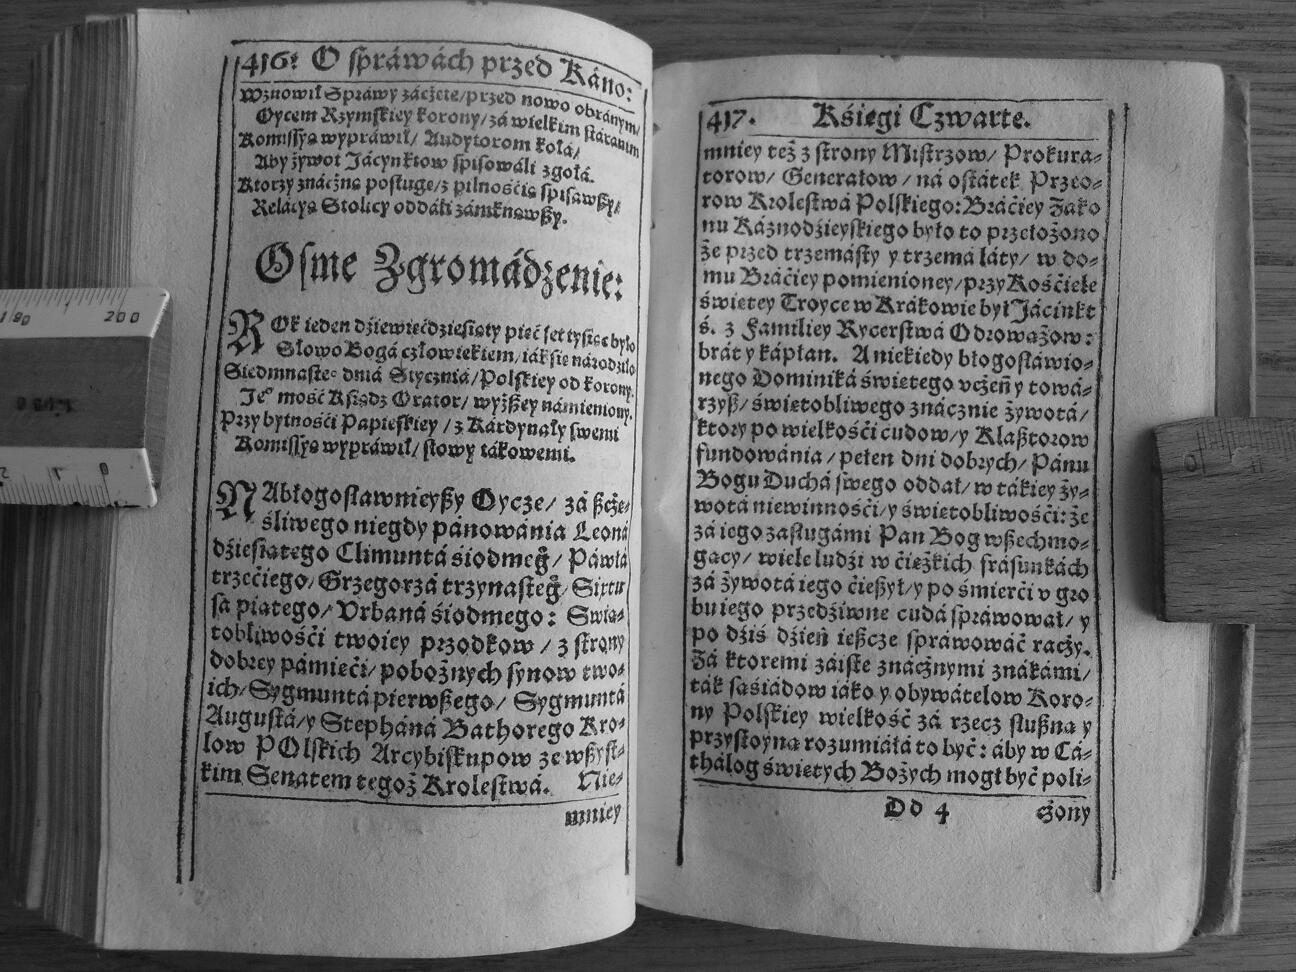 416: O spráwách przed Káno:
Wznowił Spráwy záczęte/przed nowo obránym/
Oycem Rzymskiey korony/zá wielkim stárániem
Komissyą wypráwił/ Audytorom kołá/
Aby żywot Jácynktow spisowáli zgołá.
Ktorzy znáczną posługę/z pilnośćią spisawszy/
Relácyą Stolicy oddáli zámknąwszy.
Osme Zgromádzenie:
ROk ieden dźiewiećdźiesiąty pięć set tysiąc było
Słowo Bogá człowiekiem/iák się národźiło
Siedmnastego dniá Stycznia/Polskiey od korony.
Je° mość Kśiądz Orator/wyższey námieniony.
Przy bytnośći Papieskiey/z Kárdynały swemi
Komissyą wypráwił/słowy tákowemi.
NAbłogosławnieyszy Oycze/ zá szczę-
śliwego niegdy pánowánia Leoná
dźiesiątego Climuntá siodmeg°/ Páwłá
trzećiego/Grzegorzá trzynasteg°/ Sixtu
sa piątego/Vrbaná śiodmego: Swią-
tobliwośći twoiey przodkow/z strony
dobrey pámięći/pobożnych synow two-
ich/Sygmuntá pierwszego/ Sygmuntá
Augustá/y Stepháná Bathorego Kro-
low POlskich Arcybiskupow ze wszyst-
kim Senatem tegoż Krolestwá. Nie-
mniey
417. Kśięgi Czwarte.
mniey też z strony Mistrzow/ Prokura-
torow/ Generałow/ná ostátek Przeo-
row Krolestwá Polskiego: Bráćiey Zako
nu Káznodźieyskiego było to przełożono
że przed trzemásty y trzemá láty/ w do-
mu Bráćiey pomienioney/przy Kośćiele
świętey Troyce w Krákowie był Jácinkt
ś. z Familiey Rycerstwá Odrowążow:
brát y kápłan. A niekiedy błogosłáwio-
nego Dominiká świętego vczeń y towá-
rzysz/świętobliwego znácznie żywotá/
ktory po wielkośći cudow/y Klasztorow
fundowánia/pełen dni dobrych/ Pánu
Bogu Duchá swego oddał/w tákiey ży-
wotá niewinnośći/y świętobliwośći: że
zá iego zasługámi Pan Bog wszechmo-
gący/ wiele ludźi w ćiężkich frásunkách
zá żywotá iego ćieszył/y po śmierći v gro
bu iego przedźiwne cudá spráwował/ y
po dźiś dźień ieszcze spráwowáć raczy.
Zá ktoremi záiste znácznymi znákámi/
ták sąśiádow iáko y obywátelow Koro-
ny Polskiey wielkość zá rzecz słuszną y
przystoyną rozumiáłá to być: áby w Cá-
thálog świętych Bożych mogł być poli-
Dd 4 czony